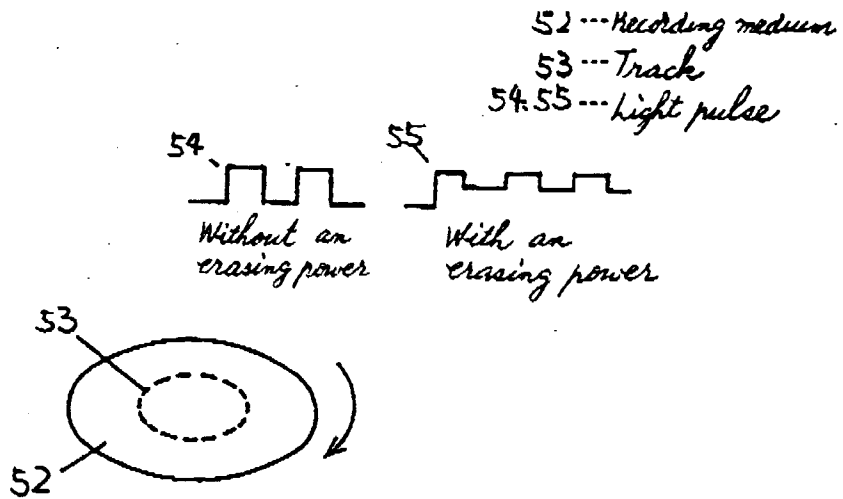 52 --- Recording medium
53 --- Track
54.55 --- Light pulse
54
55
Without an
erasing power
With an
erasing power
53
52